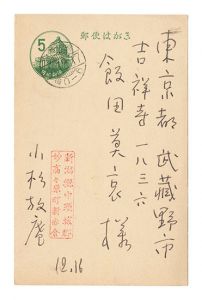 郵便はがき
5
東京都 武蔵野市
吉祥寺一八三六
飯田莫哀様
新潟縣中頸城郡
小杉放庵
12.16